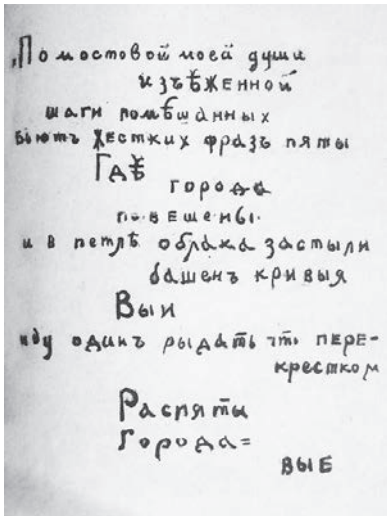 „По мостовой моей души
изъѣженной
шаги помѣшанныхъ
бьютъ жесткихъ фразъ пяты
Гдѣ
города
повешены
и в петлѣ облака застыли
башенъ кривыя
Выи
иду одинъ рыдать что пере-
крестком
Распяты
Города=
вые